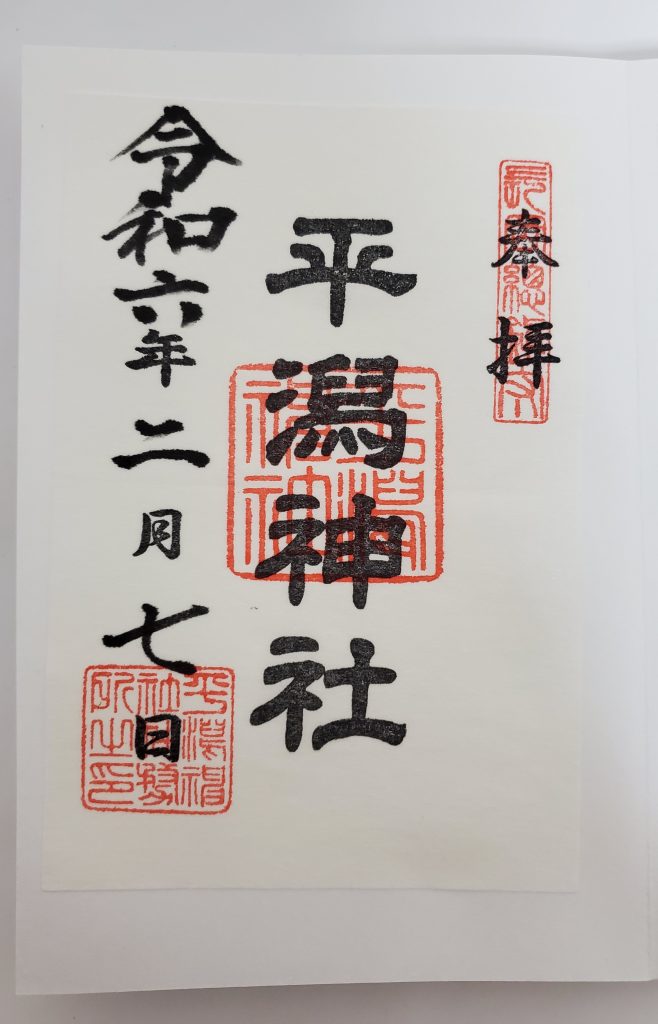 奉拝
平潟神社
令和六年二月七日
平潟神
社社務
所之印